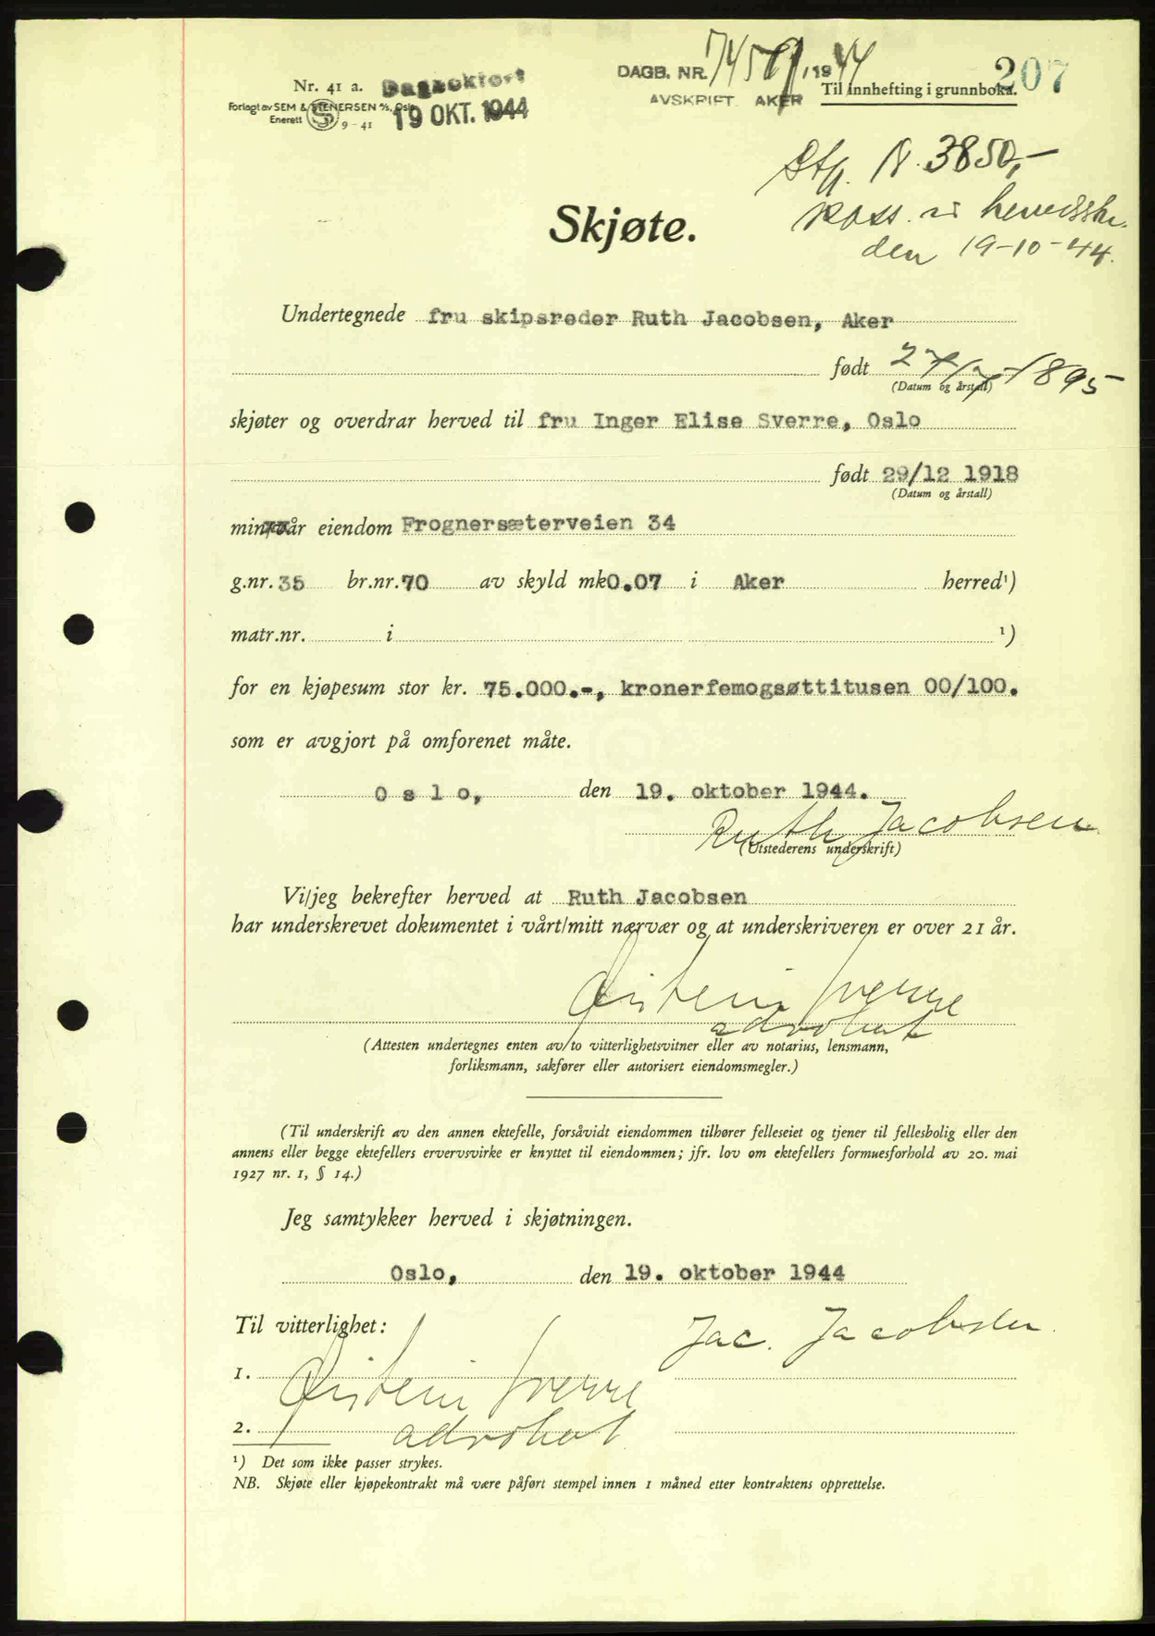 Nr. 41 a.
Forlagt av SEM & STENERSEN A/S, Oslo
Enerett 9-41
Dagbokført
19 OKT. 1944
DAGB. NR. 1944
AVSKRIFT. AKER
207
Til innhefting i grunnboka.
3850,-
den 19-10-44.
Skjøte.
Undertegnede fru skipsreder Ruth Jacobsen, Aker
født 27/7-1895
(Datum og årstall)
skjøter og overdrar herved til fru Inger Elise Sverre, Oslo
født 29/12 1918
(Datum og årstall)
min/vår eiendom Frognersæterveien 34
g.nr. 35 br.nr. 70 av skyld mk 0.07 i Aker herred¹)
matr.nr. i ¹)
for en kjøpesum stor kr. 75.000.-, kronerfemogsøttitusen 00/100.
som er avgjort på omforenet måte.
Oslo, den 19. oktober 1944.
Ruth Jacobsen
(Utstederens underskrift)
Vi/jeg bekrefter herved at Ruth Jacobsen
har underskrevet dokumentet i vårt/mitt nærvær og at underskriveren er over 21 år.
Øistein Sverre
advokat
(Attesten undertegnes enten av to vitterlighetsvitner eller av notarius, lensmann,
forliksmann, sakfører eller autorisert eiendomsmegler.)
(Til underskrift av den annen ektefelle, forsåvidt eiendommen tilhører felleseiet og tjener til fellesbolig eller den
annens eller begge ektefellers ervervsvirke er knyttet til eiendommen; jfr. lov om ektefellers formuesforhold av 20. mai
1927 nr. 1, § 14.)
Jeg samtykker herved i skjøtningen.
Oslo, den 19. oktober 1944
Til vitterlighet:
Jac. Jacobsen
1. Øistein Sverre
2. advokat
¹) Det som ikke passer strykes.
NB. Skjøte eller kjøpekontrakt må være påført stempel innen 1 måned etter kontraktens opprettelse.